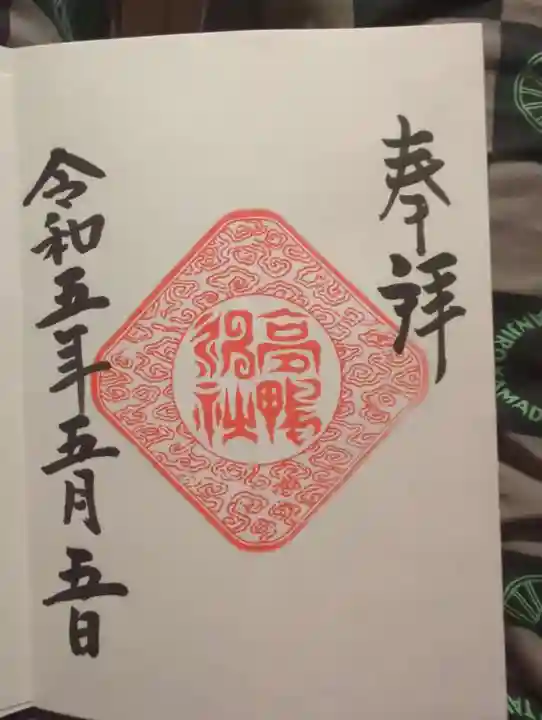 奉拝
高鴨
神社
令和五年五月五日